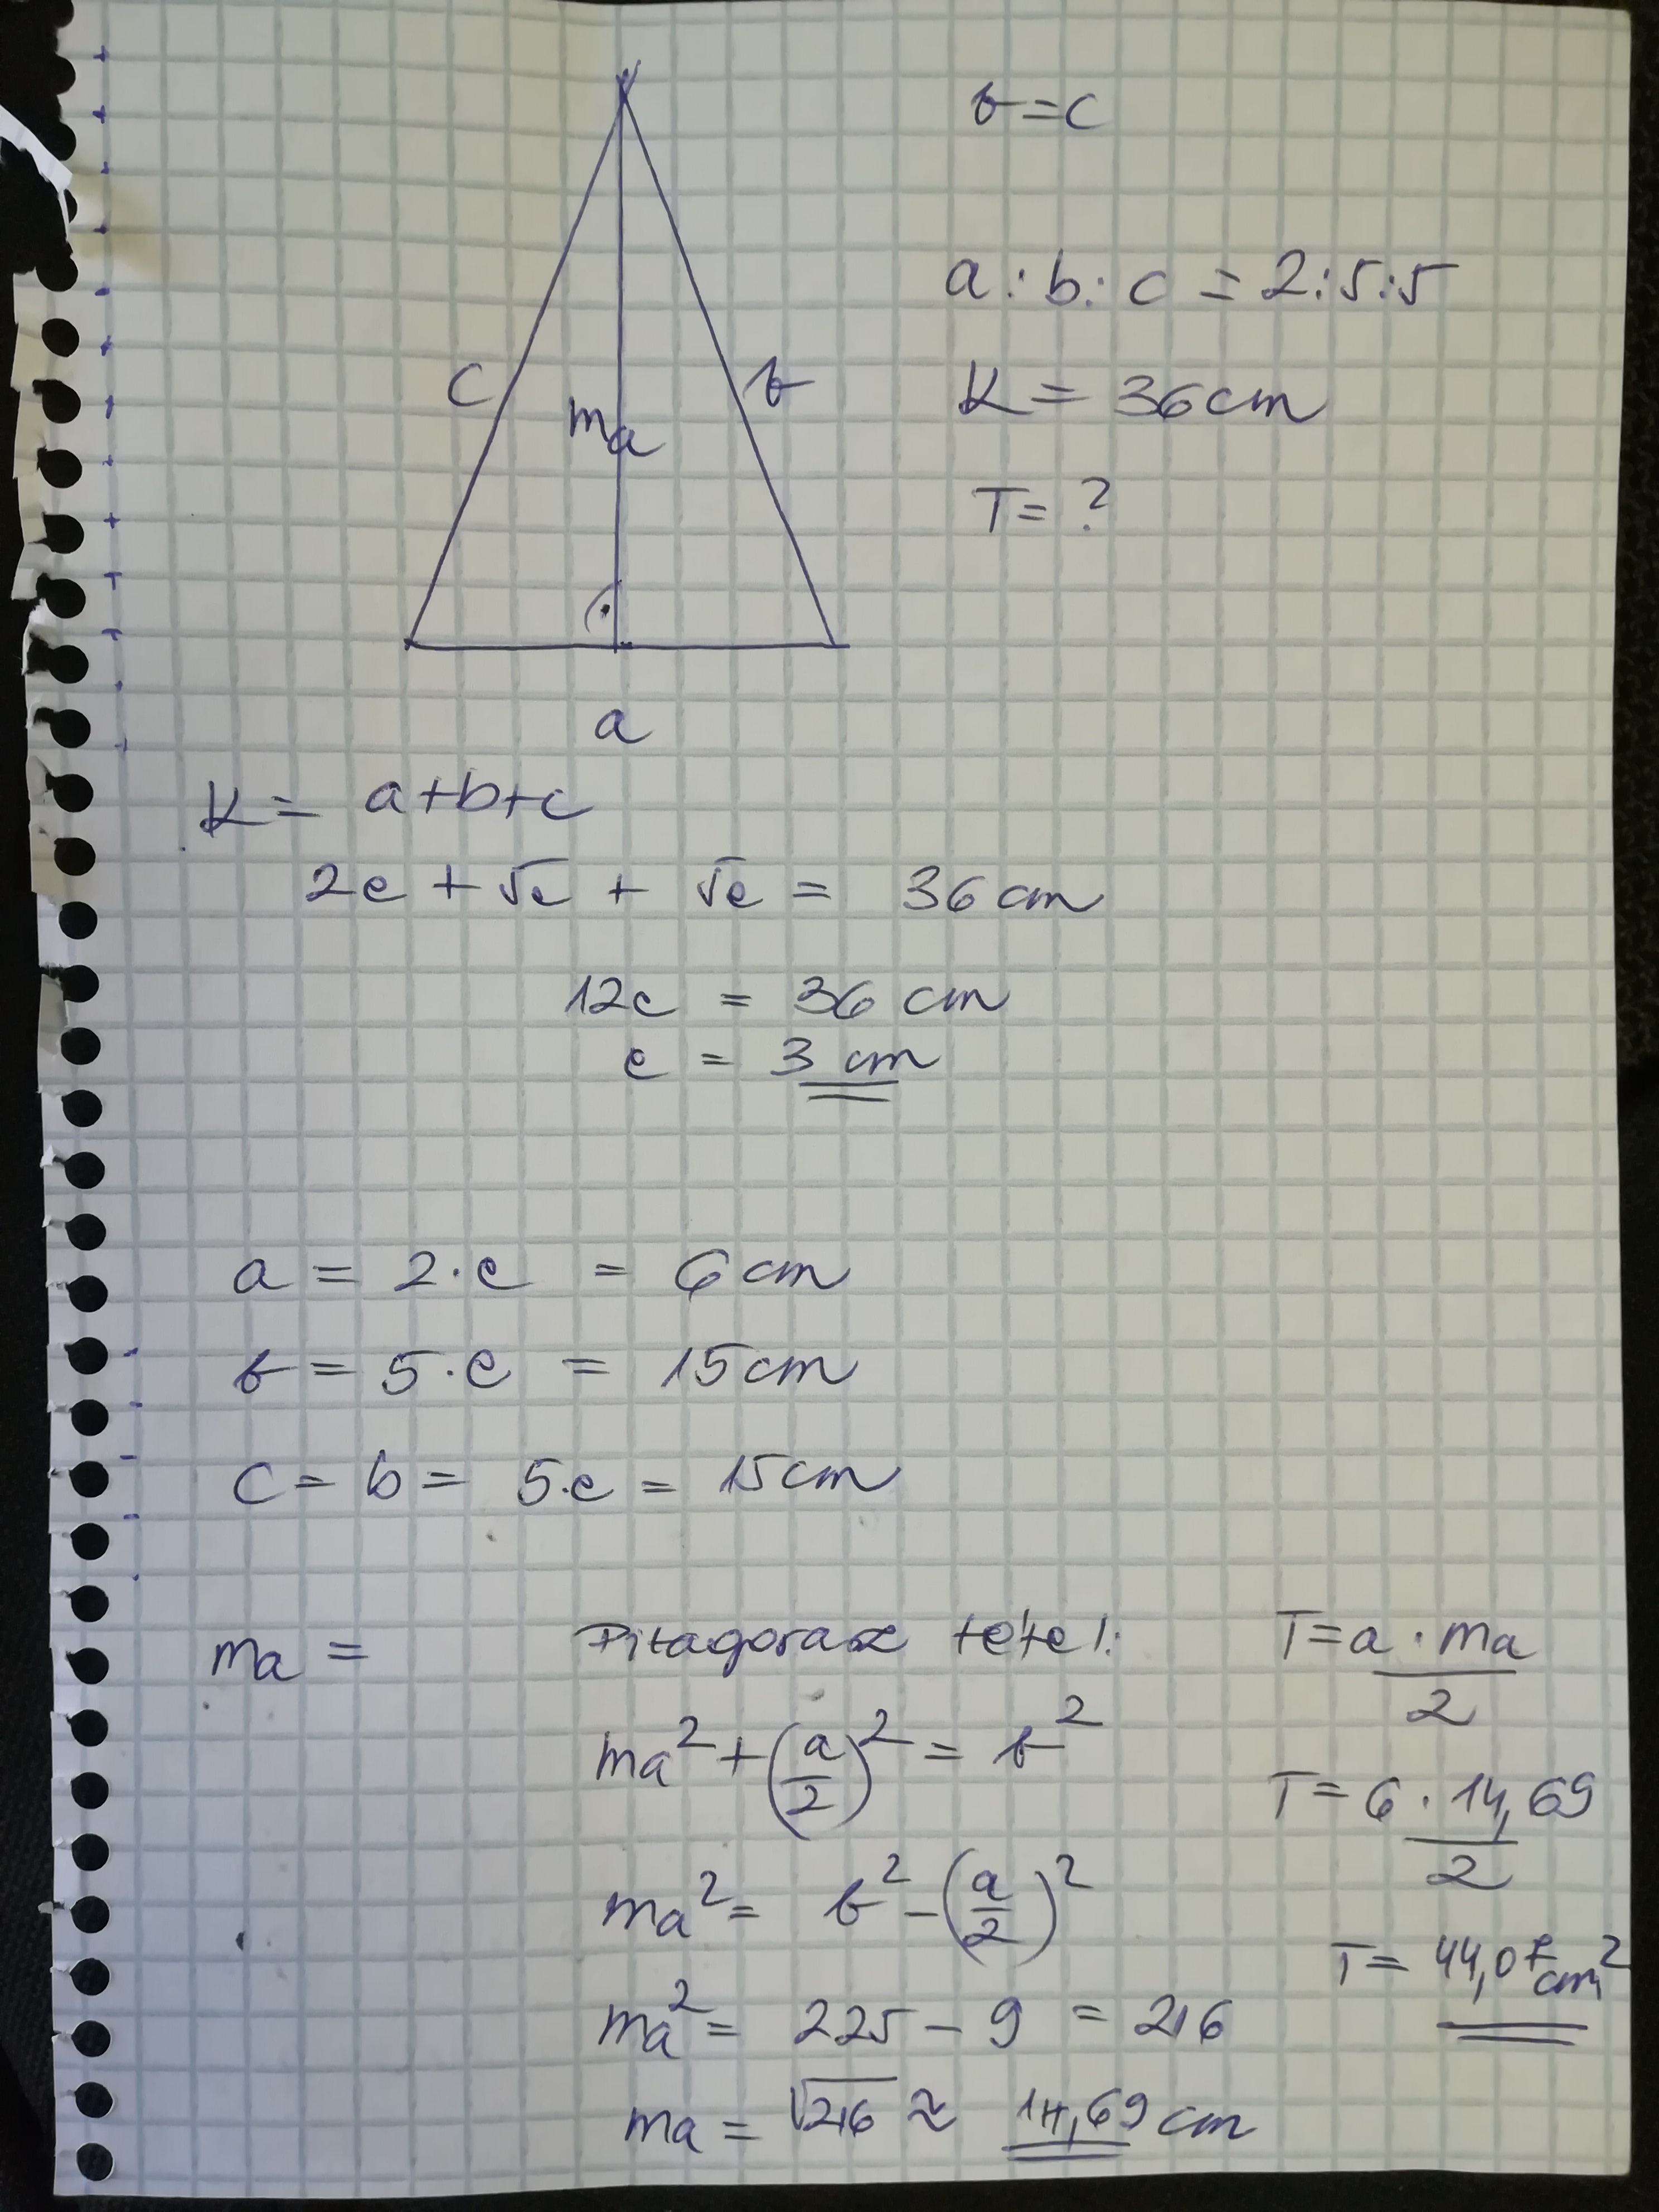 b=c
a:b:c = 2:5:5
K = 36cm
T= ?
c
ma
b
a
K= a+b+c
2e + 5e + 5e = 36 cm
12e = 36 cm
e = 3 cm
a = 2·e = 6cm
b = 5·e = 15cm
c = b = 5·e = 15cm
ma =
Pitagorasz tétel:
ma² + (a/2)² = b²
ma² = b² - (a/2)²
ma² = 225 - 9 = 216
ma = √216 ≈ 14,69 cm
T = a · ma / 2
T = 6 · 14,69 / 2
T = 44,07 cm²